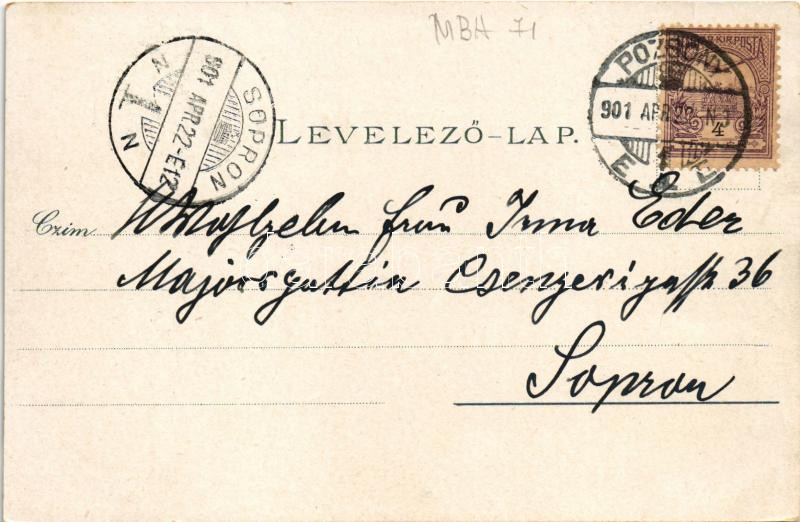 MBH 71
POZSONY
901 APR 22
SOPRON
901 APR.22-E12
N 1 N
KIR. POSTA
4
LEVELEZŐ-LAP.
Czím Wohlgeb. frau Irma Eder
Majorsgattin Csengerigasse 36
Sopron